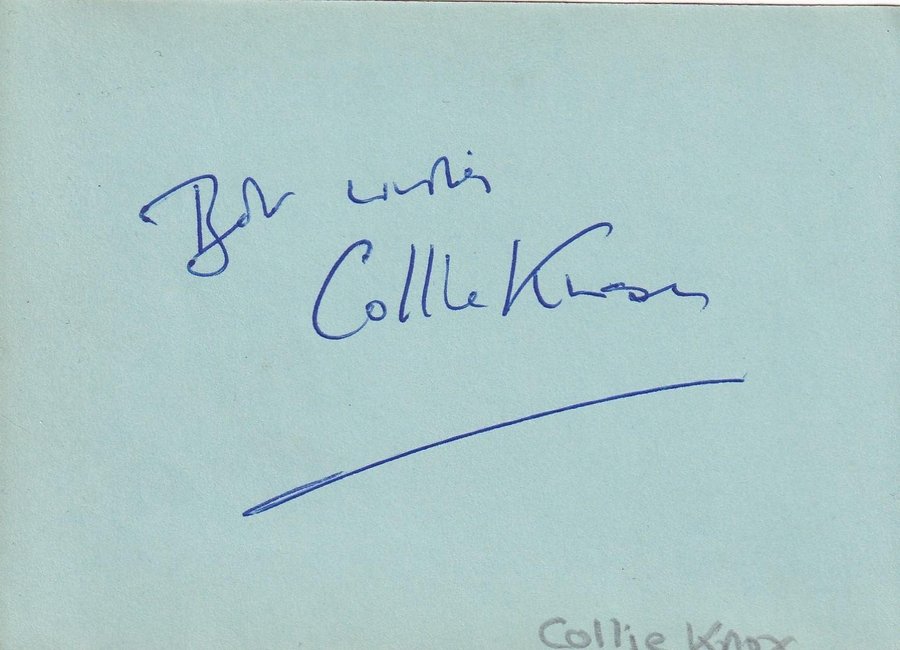 Best wishes
Collie Knox
Collie Knox